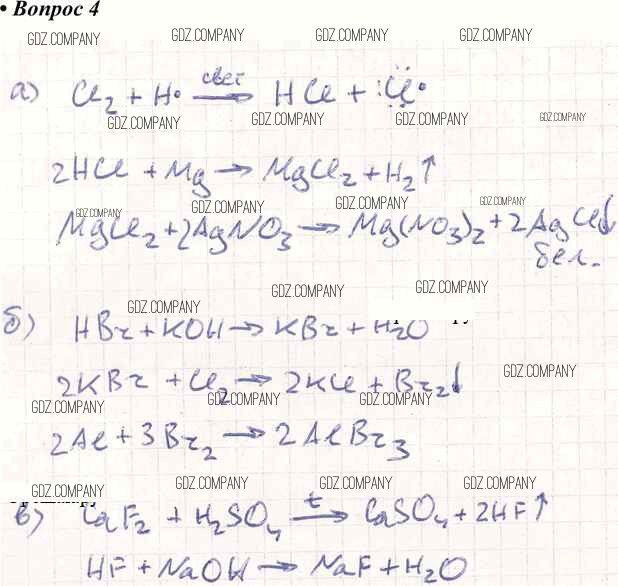 • Вопрос 4
GDZ.COMPANY GDZ.COMPANY GDZ.COMPANY GDZ.COMPANY
а) Cl₂ + H• —свет→ HCl + :C̈l•
GDZ.COMPANY GDZ.COMPANY GDZ.COMPANY GDZ.COMPANY
2HCl + Mg → MgCl₂ + H₂↑
GDZ.COMPANY GDZ.COMPANY GDZ.COMPANY GDZ.COMPANY
MgCl₂ + 2AgNO₃ → Mg(NO₃)₂ + 2AgCl↓
бел.
GDZ.COMPANY GDZ.COMPANY GDZ.COMPANY
б) HBr + KOH → KBr + H₂O
2KBr + Cl₂ → 2KCl + Br₂↓
GDZ.COMPANY GDZ.COMPANY GDZ.COMPANY GDZ.COMPANY
2Al + 3Br₂ → 2AlBr₃
GDZ.COMPANY GDZ.COMPANY GDZ.COMPANY GDZ.COMPANY
в) CaF₂ + H₂SO₄ —t→ CaSO₄ + 2HF↑
HF + NaOH → NaF + H₂O